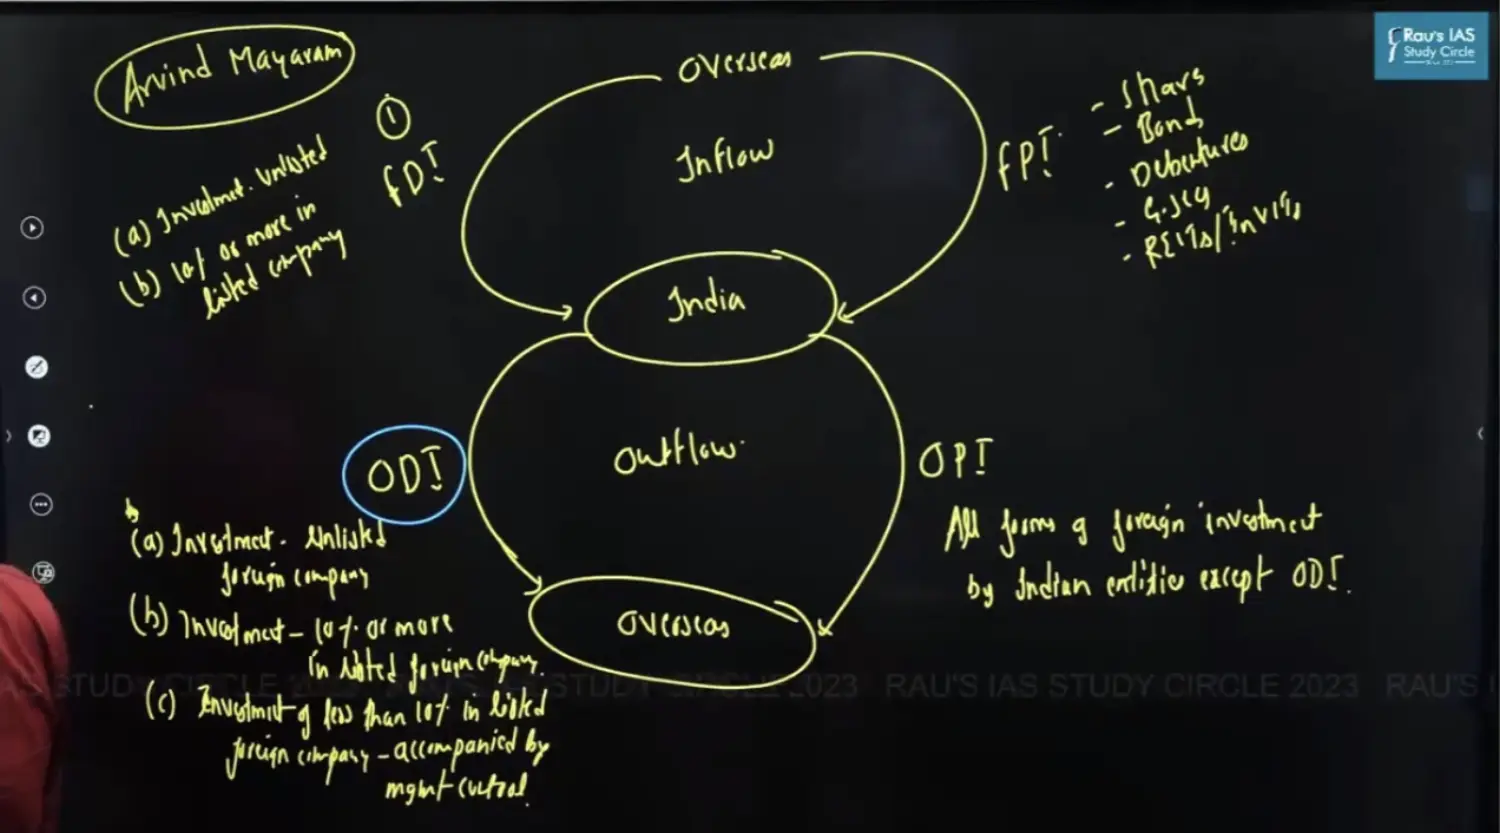 Arvind Mayaram
Rau's IAS
Study Circle
①
FDI
(a) Investment - Unlisted
(b) 10% or more in
listed company
Overseas
Inflow
India
FPI
- Shares
- Bonds
- Debentures
- G-Sec
- REITs/InvITs
ODI
Outflow
OPI
Overseas
(a) Investment - Unlisted
foreign company
(b) Investment - 10% or more
in listed foreign company.
(c) Investment of less than 10% in listed
foreign company - accompanied by
mgmt control.
All forms of foreign investment
by Indian entities except ODI.
AS STUDY CIRCLE 2023 RAU'S IAS STUDY CIRCLE 2023 RAU'S IAS STUDY CIRCLE 2023 RAU'S I